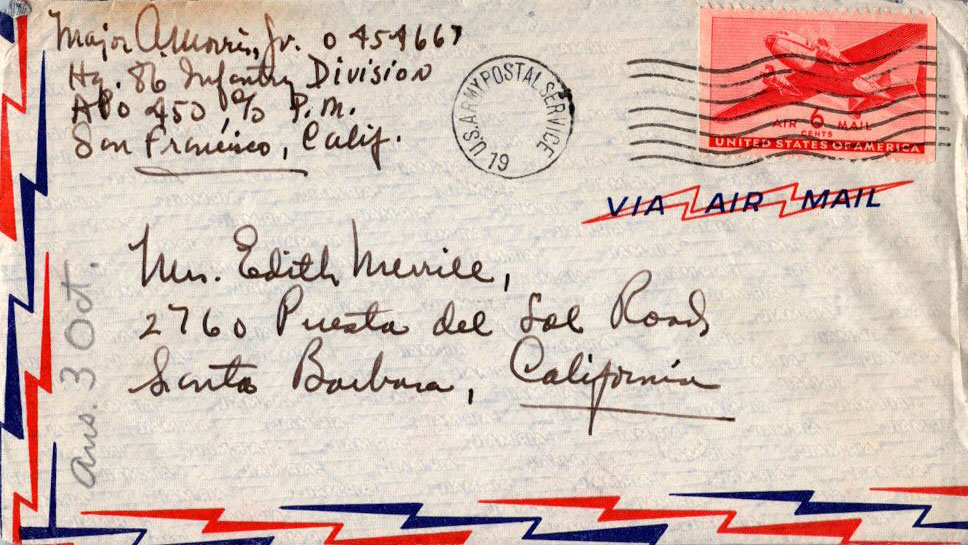 Major A. Morris, Jr. O 454667
Hq. 86 Infantry Division
APO 450, c/o P.M.
San Francisco, Calif.
U.S. ARMY POSTAL SERVICE
19
AIR 6 MAIL
CENTS
UNITED STATES OF AMERICA
VIA AIR MAIL
Mrs. Edith Merrill,
2760 Puesta del Sol Road
Santa Barbara, California
ans. 3 Oct.